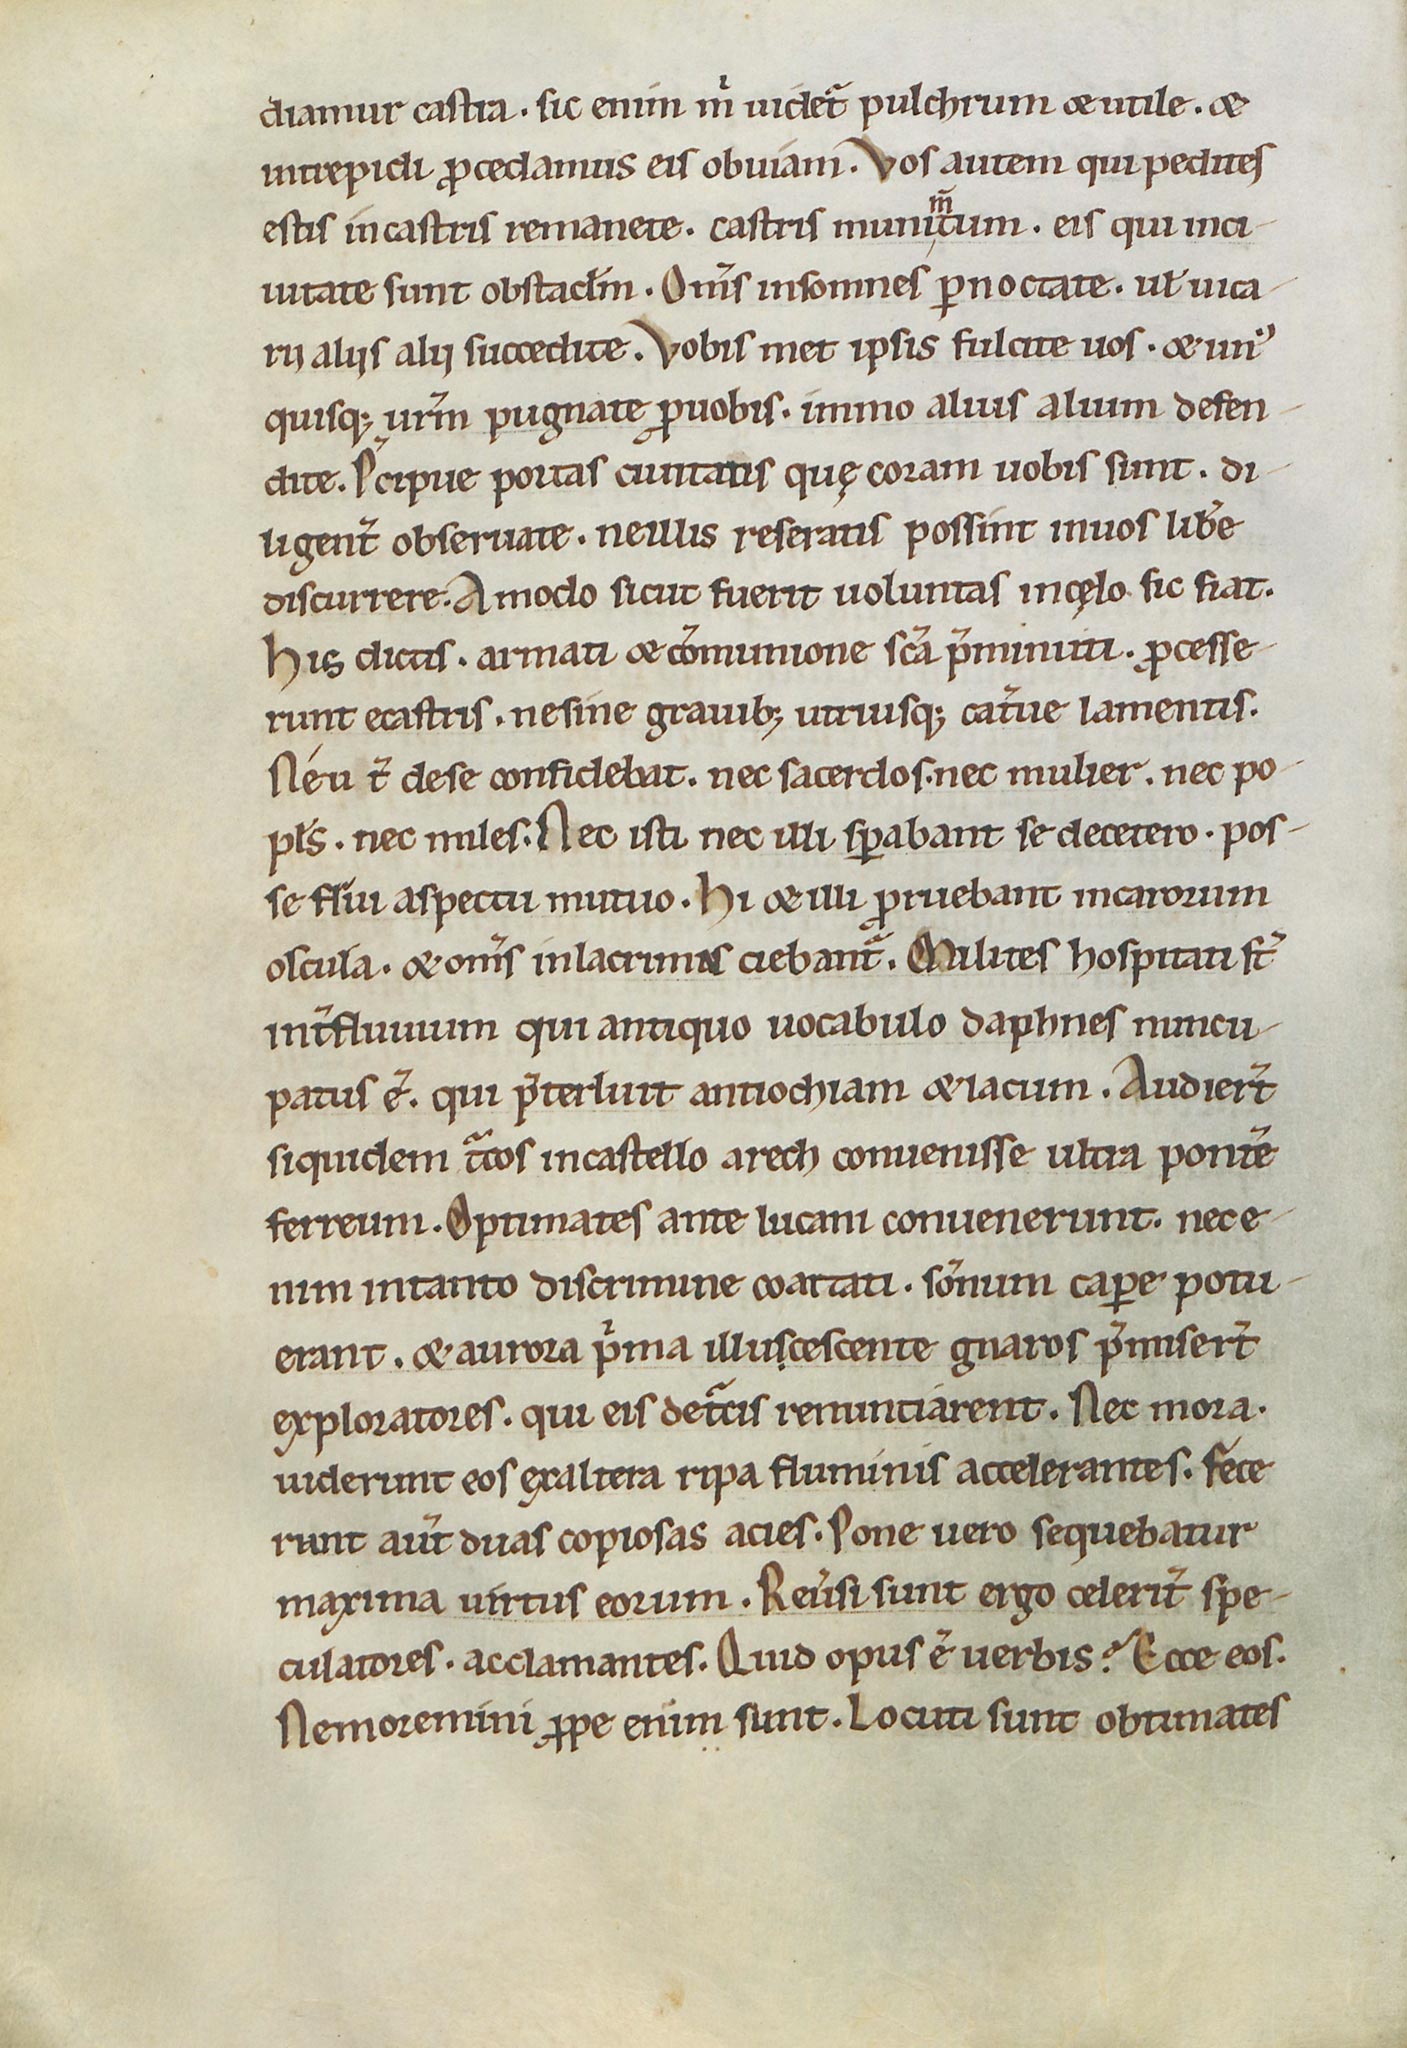 diamur castra. sic enim m̄ uidet᷑ pulchrum & utile. &
intrepidi ꝓcedamus eis obuiam. Vos autem qui pedites
estis in castris remanete. castris munim̅tum. eis qui in ci-
uitate sunt obstaclm̅. Om̅s insomnes ꝑnoctate. ut̅ uica-
rij alijs alij succedite. Vobis met ipsis fulcite uos. & un᷒
quisq; ur̅m pugnate ꝓ uobis. immo alius alium defen-
dite. P̅cipue portas ciuitatis quę coram uobis sunt. di-
ligent̅ obseruate. ne illis reseratis possint in uos lib̅e
discurrere. Amodo sicut fuerit uoluntas in cęlo sic fiat.
His dictis. armati & cōmunione sc̅a p̅miniti. ꝓcesse-
runt e castris. ne sine grauib; utriusq; cat̅ue lamentis.
Neu t̅ de se confidebat. nec sacerdos. nec mulier. nec po-
pl̅s. nec miles. Nec isti nec illi sꝑabant se de cetero. pos-
se fl̅ui aspectu mutuo. Hi & illi ꝓruebant in carorum
oscula. & om̅s in lacrimas ciebant᷑. Milites hospitati st̅
int̅ fluuium qui antiquo uocabulo daphnes nuncu-
patus e̅. qui p̅terluit antiochiam & lacum. Audiert̅
siquidem tͣcos in castello arech conuenisse ultra ponte̅
ferreum. Optimates ante lucam conuenerunt. nec e-
nim in tanto discrimine coartati. som̅num caꝑe potu-
erant. & aurora pⁱma illuscescente gnaros p̅misert̅
exploratores. qui eis de tͣcis renunciarent. Nec mora.
uiderunt eos ex altera ripa fluminis accelerantes. fece
runt aut̅ duas copiosas acies. Pone uero sequebatur
maxima uirtus eorum. Reu̅si sunt ergo celerit̅ spe-
culatores. acclamantes. Quid opus e̅ uerbis? Ecce eos.
Ne moremini ꝓpe enim sunt. Locuti sunt obtimates